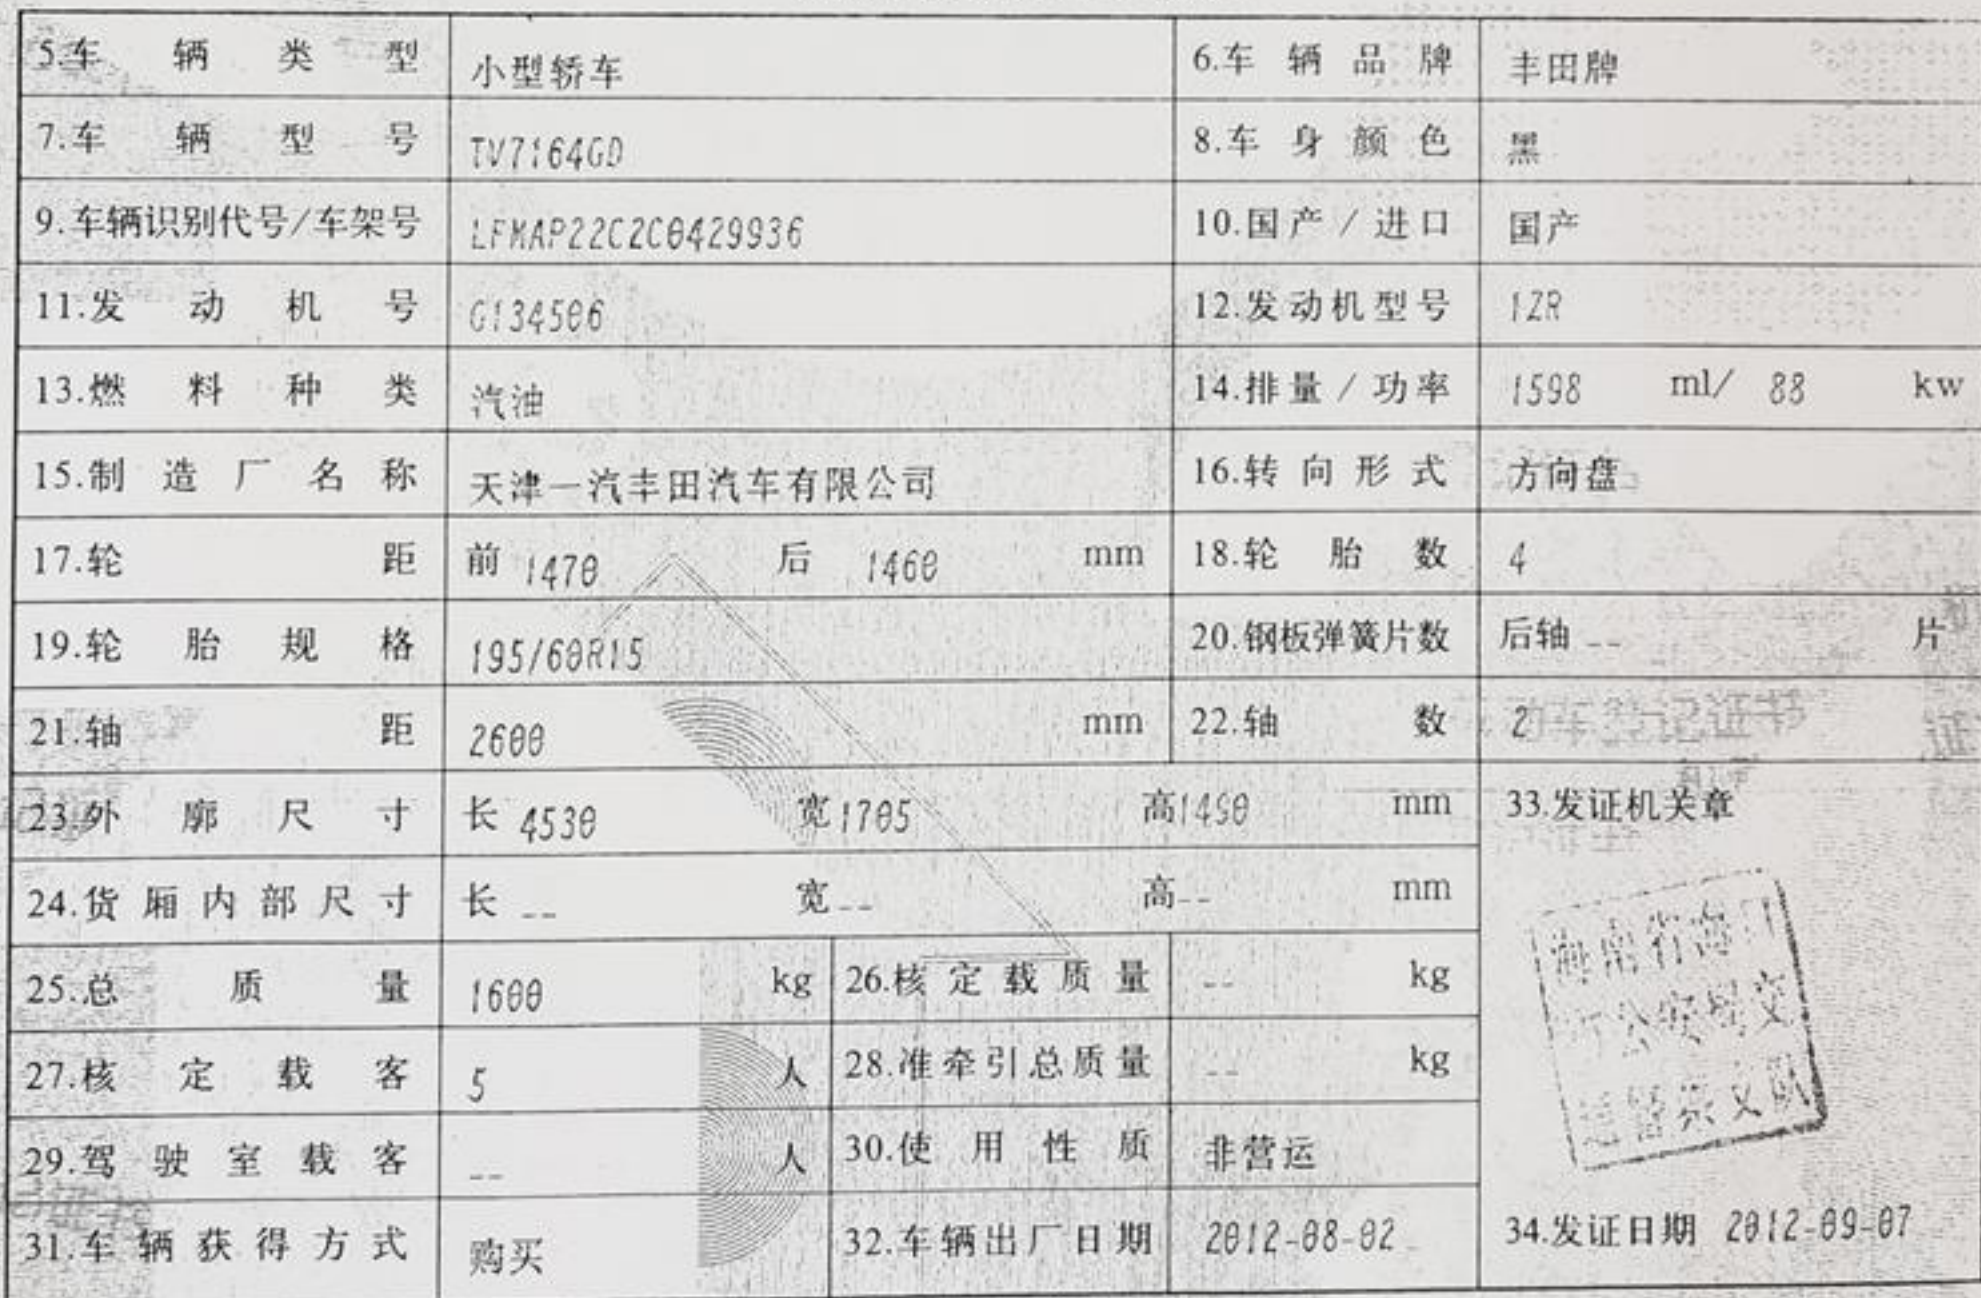 5.车辆类型 小型轿车 6.车辆品牌 丰田牌
7.车辆型号 TV7164GD 8.车身颜色 黑
9.车辆识别代号/车架号 LFMAP22C2C0429936 10.国产/进口 国产
11.发动机号 G134506 12.发动机型号 1ZR
13.燃料种类 汽油 14.排量/功率 1598 ml/ 88 kw
15.制造厂名称 天津一汽丰田汽车有限公司 16.转向形式 方向盘
17.轮距 前 1470 后 1460 mm 18.轮胎数 4
19.轮胎规格 195/60R15 20.钢板弹簧片数 后轴 -- 片
21.轴距 2600 mm 22.轴数 2
23.外廓尺寸 长 4530 宽 1705 高 1490 mm 33.发证机关章
24.货厢内部尺寸 长 -- 宽 -- 高 -- mm
25.总质量 1600 kg 26.核定载质量 -- kg
27.核定载客 5 人 28.准牵引总质量 -- kg
29.驾驶室载客 -- 人 30.使用性质 非营运
31.车辆获得方式 购买 32.车辆出厂日期 2012-08-02 34.发证日期 2012-09-07
海南省海口
市公安局交